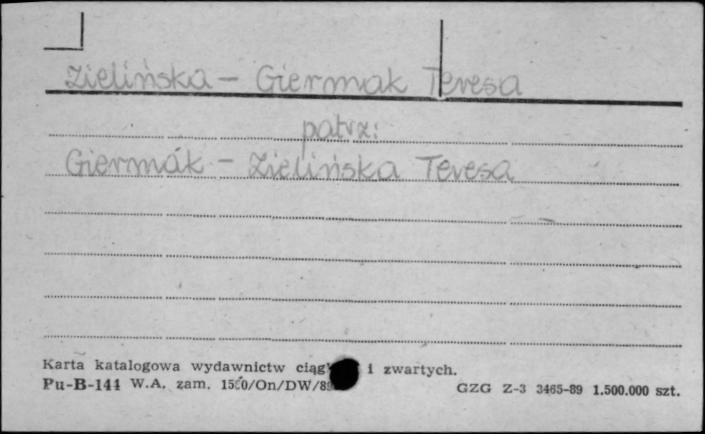 Zielińska - Giermak Teresa
patrz:
Giermak - Zielińska Teresa
Karta katalogowa wydawnictw ciąg i zwartych.
Pu-B-144 W.A. zam. /On/DW/89 GZG Z-3 3465-89 1.500.000 szt.